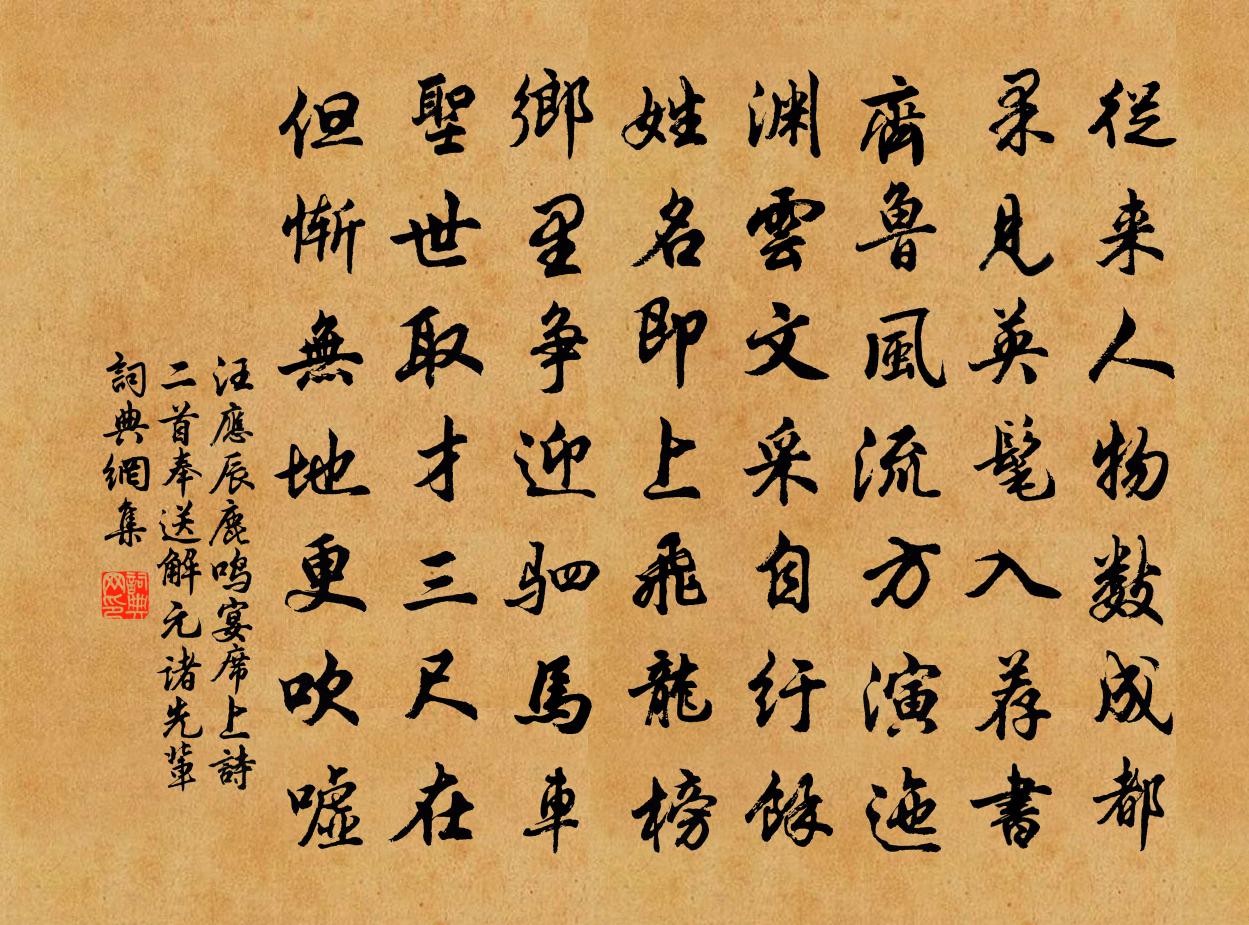 從来人物数成都
果見英髦入荐書
齊魯風流方演迤
渊雲文采自纡餘
姓名即上飛龍榜
鄉里争迎驷馬車
聖世取才三尺在
但慚無地更吹嘘
汪應辰鹿鸣宴席上詩
二首奉送解元诸先輩
詞典網集
詞典
网印